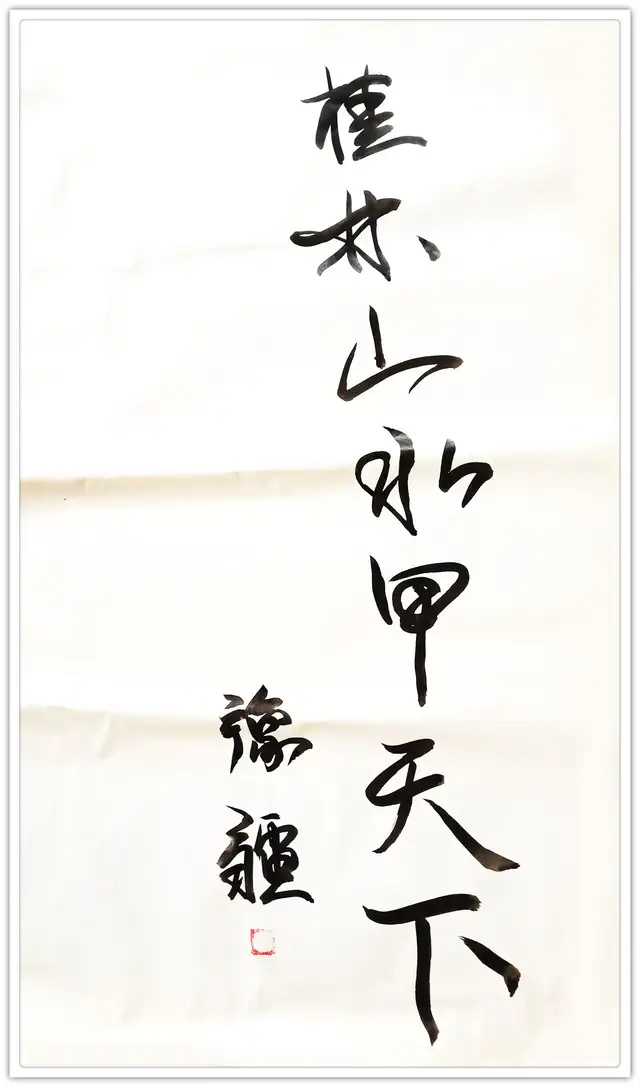 桂林山水甲天下
豫疆